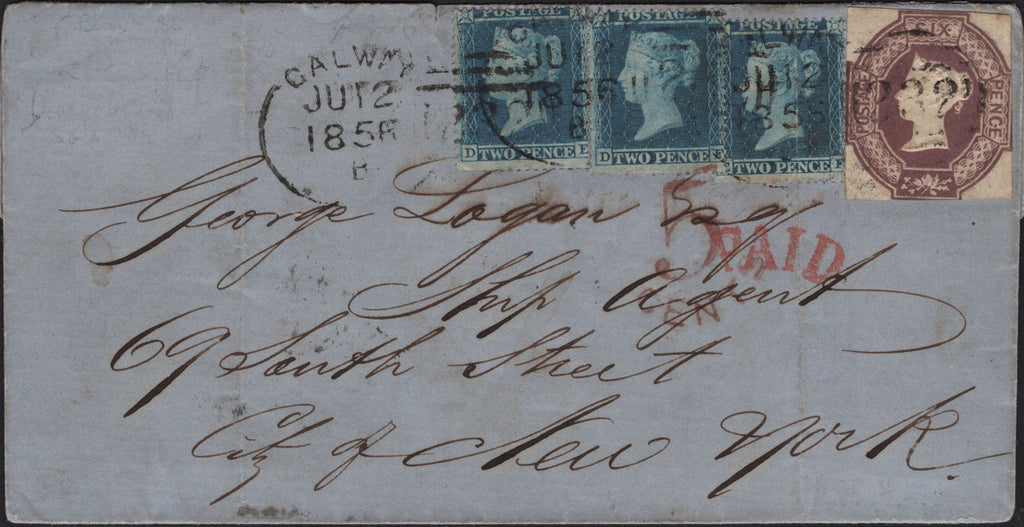 POSTAGE POSTAGE POSTAGE
SIX
POSTAGE
PENCE
GALWAY
JU12
1856
B
JU12
1856
B
JU12
1856
D TWO PENCE E
D TWO PENCE E
TWO PENCE E
George Logan Esq
5 PAID
CEN
Ship Agent
69 South Street
City of New York